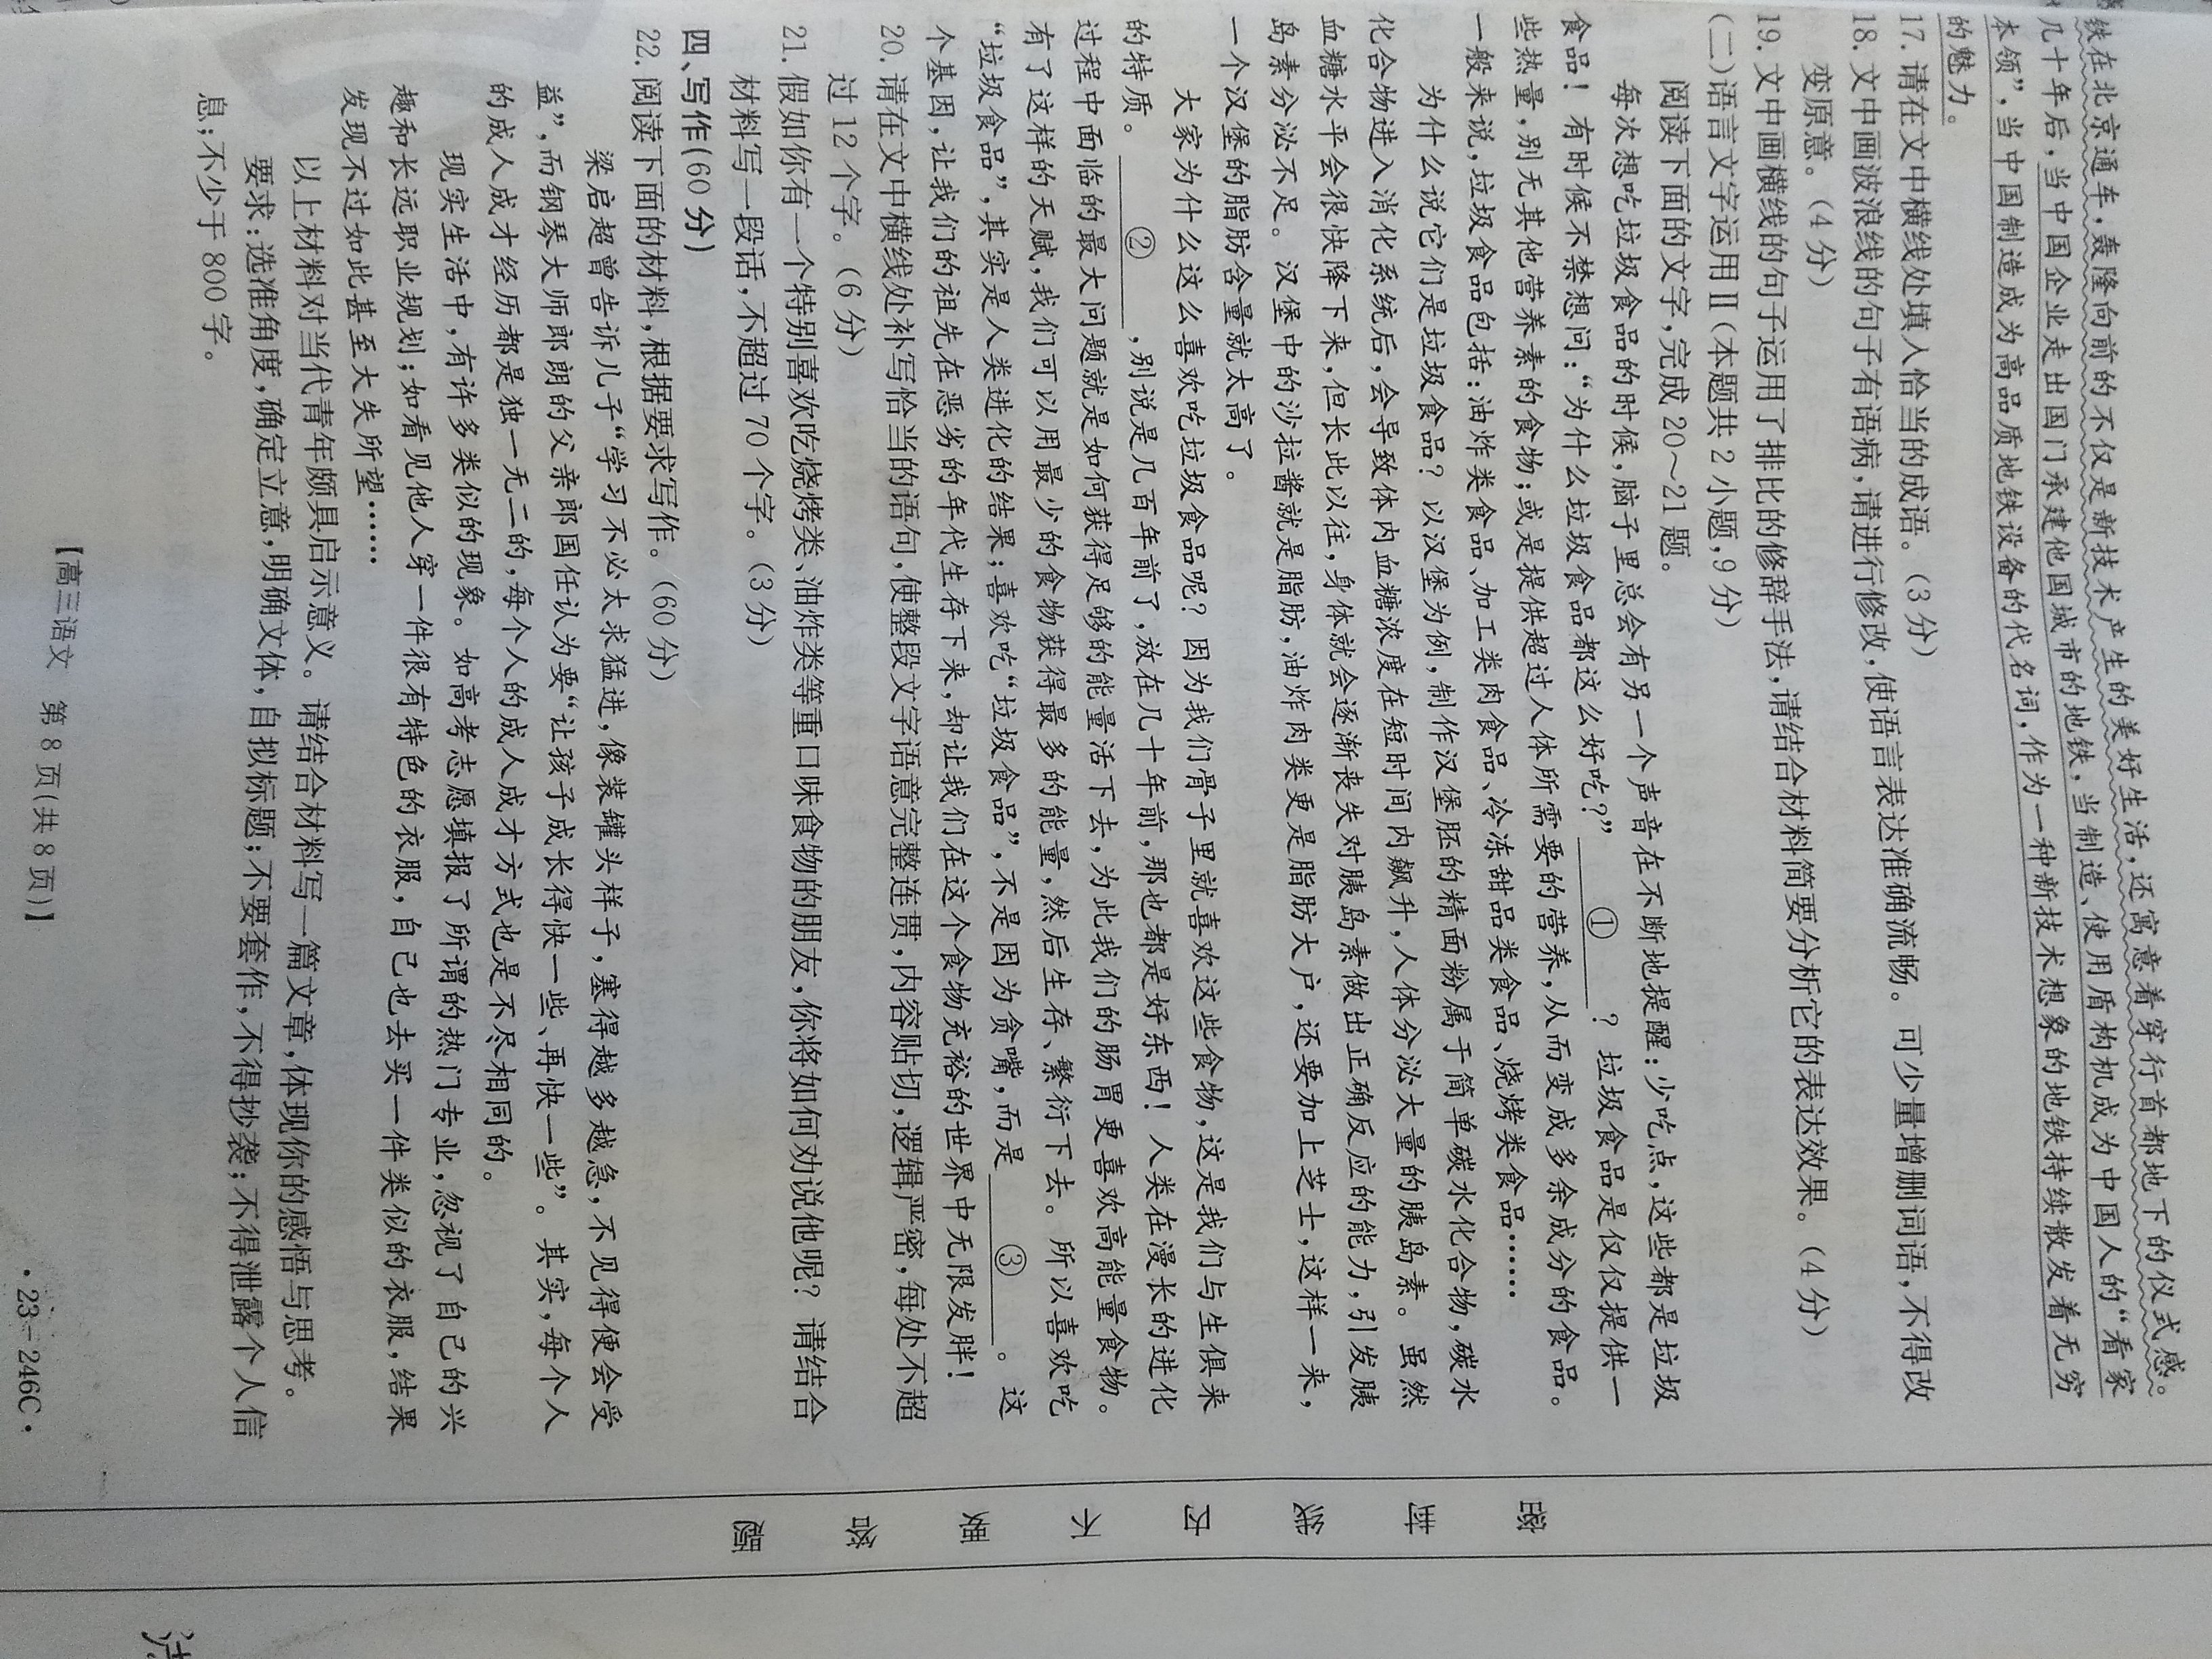 铁在北京通车,轰隆向前的不仅是新技术产生的美好生活,还寓意着穿行首都地下的仪式感。
几十年后,当中国企业走出国门承建他国城市的地铁,当制造、使用盾构机成为中国人的“看家
本领”,当中国制造成为高品质地铁设备的代名词,作为一种新技术想象的地铁持续散发着无穷
的魅力。
17. 请在文中横线处填入恰当的成语。(3分)
18. 文中画波浪线的句子有语病,请进行修改,使语言表达准确流畅。可少量增删词语,不得改
变原意。(4分)
19. 文中画横线的句子运用了排比的修辞手法,请结合材料简要分析它的表达效果。(4分)
(二)语言文字运用Ⅱ(本题共2小题,9分)
阅读下面的文字,完成20~21题。
每次想吃垃圾食品的时候,脑子里总会有另一个声音在不断地提醒:少吃点,这些都是垃圾
食品!有时候不禁想问:“为什么垃圾食品都这么好吃?” ① ?垃圾食品是仅仅提供一
些热量,别无其他营养素的食物;或是提供超过人体所需要的营养,从而变成多余成分的食品。
一般来说,垃圾食品包括:油炸类食品、加工类肉食品、冷冻甜品类食品、烧烤类食品……
为什么说它们是垃圾食品?以汉堡为例,制作汉堡胚的精面粉属于简单碳水化合物,碳水
化合物进入消化系统后,会导致体内血糖浓度在短时间内飙升,人体分泌大量的胰岛素。虽然
血糖水平会很快降下来,但长此以往,身体就会逐渐丧失对胰岛素做出正确反应的能力,引发胰
岛素分泌不足。汉堡中的沙拉酱就是脂肪,油炸肉类更是脂肪大户,还要加上芝士,这样一来,
一个汉堡的脂肪含量就太高了。
大家为什么这么喜欢吃垃圾食品呢?因为我们骨子里就喜欢这些食物,这是我们与生俱来
的特质。 ② ,别说是几百年前了,放在几十年前,那也都是好东西!人类在漫长的进化
过程中面临的最大问题就是如何获得足够的能量活下去,为此我们的肠胃更喜欢高能量食物。
有了这样的天赋,我们可以用最少的食物获得最多的能量,然后生存、繁衍下去。所以喜欢吃
“垃圾食品”,其实是人类进化的结果;喜欢吃“垃圾食品”,不是因为贪嘴,而是 ③ 。这
个基因,让我们的祖先在恶劣的年代生存下来,却让我们在这个食物充裕的世界中无限发胖!
20. 请在文中横线处补写恰当的语句,使整段文字语意完整连贯,内容贴切,逻辑严密,每处不超
过12个字。(6分)
21. 假如你有一个特别喜欢吃烧烤类、油炸类等重口味食物的朋友,你将如何劝说他呢?请结合
材料写一段话,不超过70个字。(3分)
四、写作(60分)
22. 阅读下面的材料,根据要求写作。(60分)
梁启超曾告诉儿子“学习不必太求猛进,像装罐头样子,塞得越多越急,不见得便会受
益”,而钢琴大师郎朗的父亲郎国任认为要“让孩子成长得快一些、再快一些”。其实,每个人
的成人成才经历都是独一无二的,每个人的成人成才方式也是不尽相同的。
现实生活中,有许多类似的现象。如高考志愿填报了所谓的热门专业,忽视了自己的兴
趣和长远职业规划;如看见他人穿一件很有特色的衣服,自己也去买一件类似的衣服,结果
发现不过如此甚至大失所望……
以上材料对当代青年颇具启示意义。请结合材料写一篇文章,体现你的感悟与思考。
要求:选准角度,确定立意,明确文体,自拟标题;不要套作,不得抄袭;不得泄露个人信
息;不少于800字。
【高三语文 第8页(共8页)】
·23-246C·
密
封
线
内
不
要
答
题